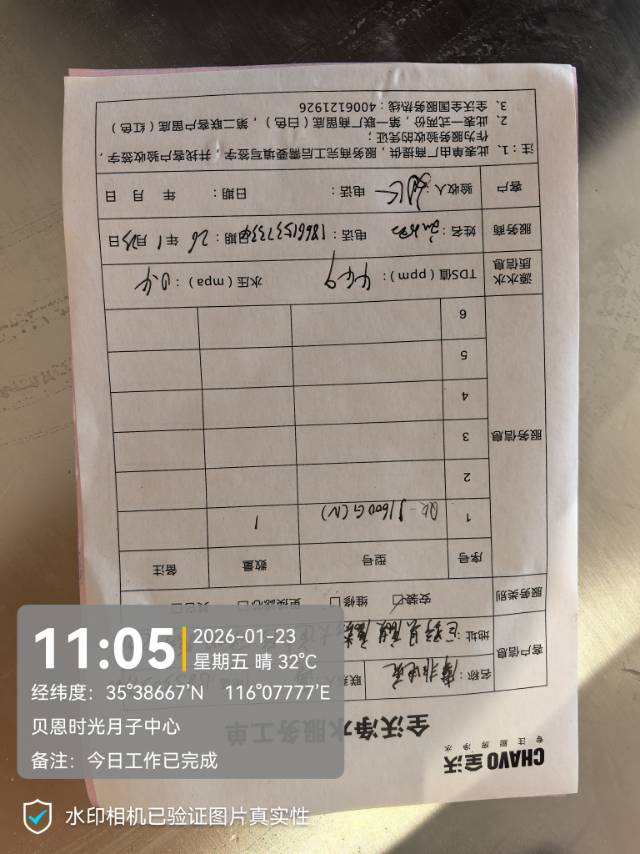 CHAVO 全沃
专注厨房净水
全沃净水服务工单
客户信息
名称：
地址：
服务类别
安装 维修 更换滤心
服务信息
序号 型号 数量 备注
1 1600G(N) 1
2
3
4
5
6
源水水质信息
TDS值（ppm）： 水压（mpa）：0.4
服务商
姓名： 电话：18661537334 日期：26年1月23日
客户
验收人： 电话： 日期： 年 月 日
注：1、此表单由厂商提供，服务商完工后需填写签字，并找客户验收签字，
作为服务验收的凭证；
2、此表一式两份，第一联厂商留底（白色），第二联客户留底（红色）
3、全沃全国服务热线：4006121926
11:05
2026-01-23
星期五 晴 32℃
经纬度：35°38667′N 116°07777′E
贝恩时光月子中心
备注：今日工作已完成
水印相机已验证图片真实性